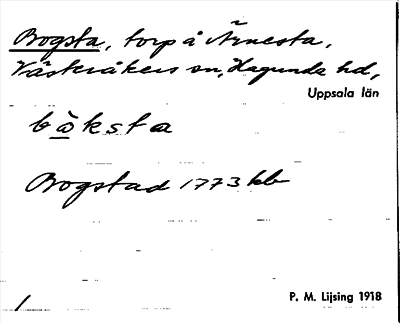 Bogsta, torp å Ärnesta,
Västeråkers sn, Hagunda hd,
Uppsala län
båksta
Bogstad 1773 kb
P. M. Lijsing 1918